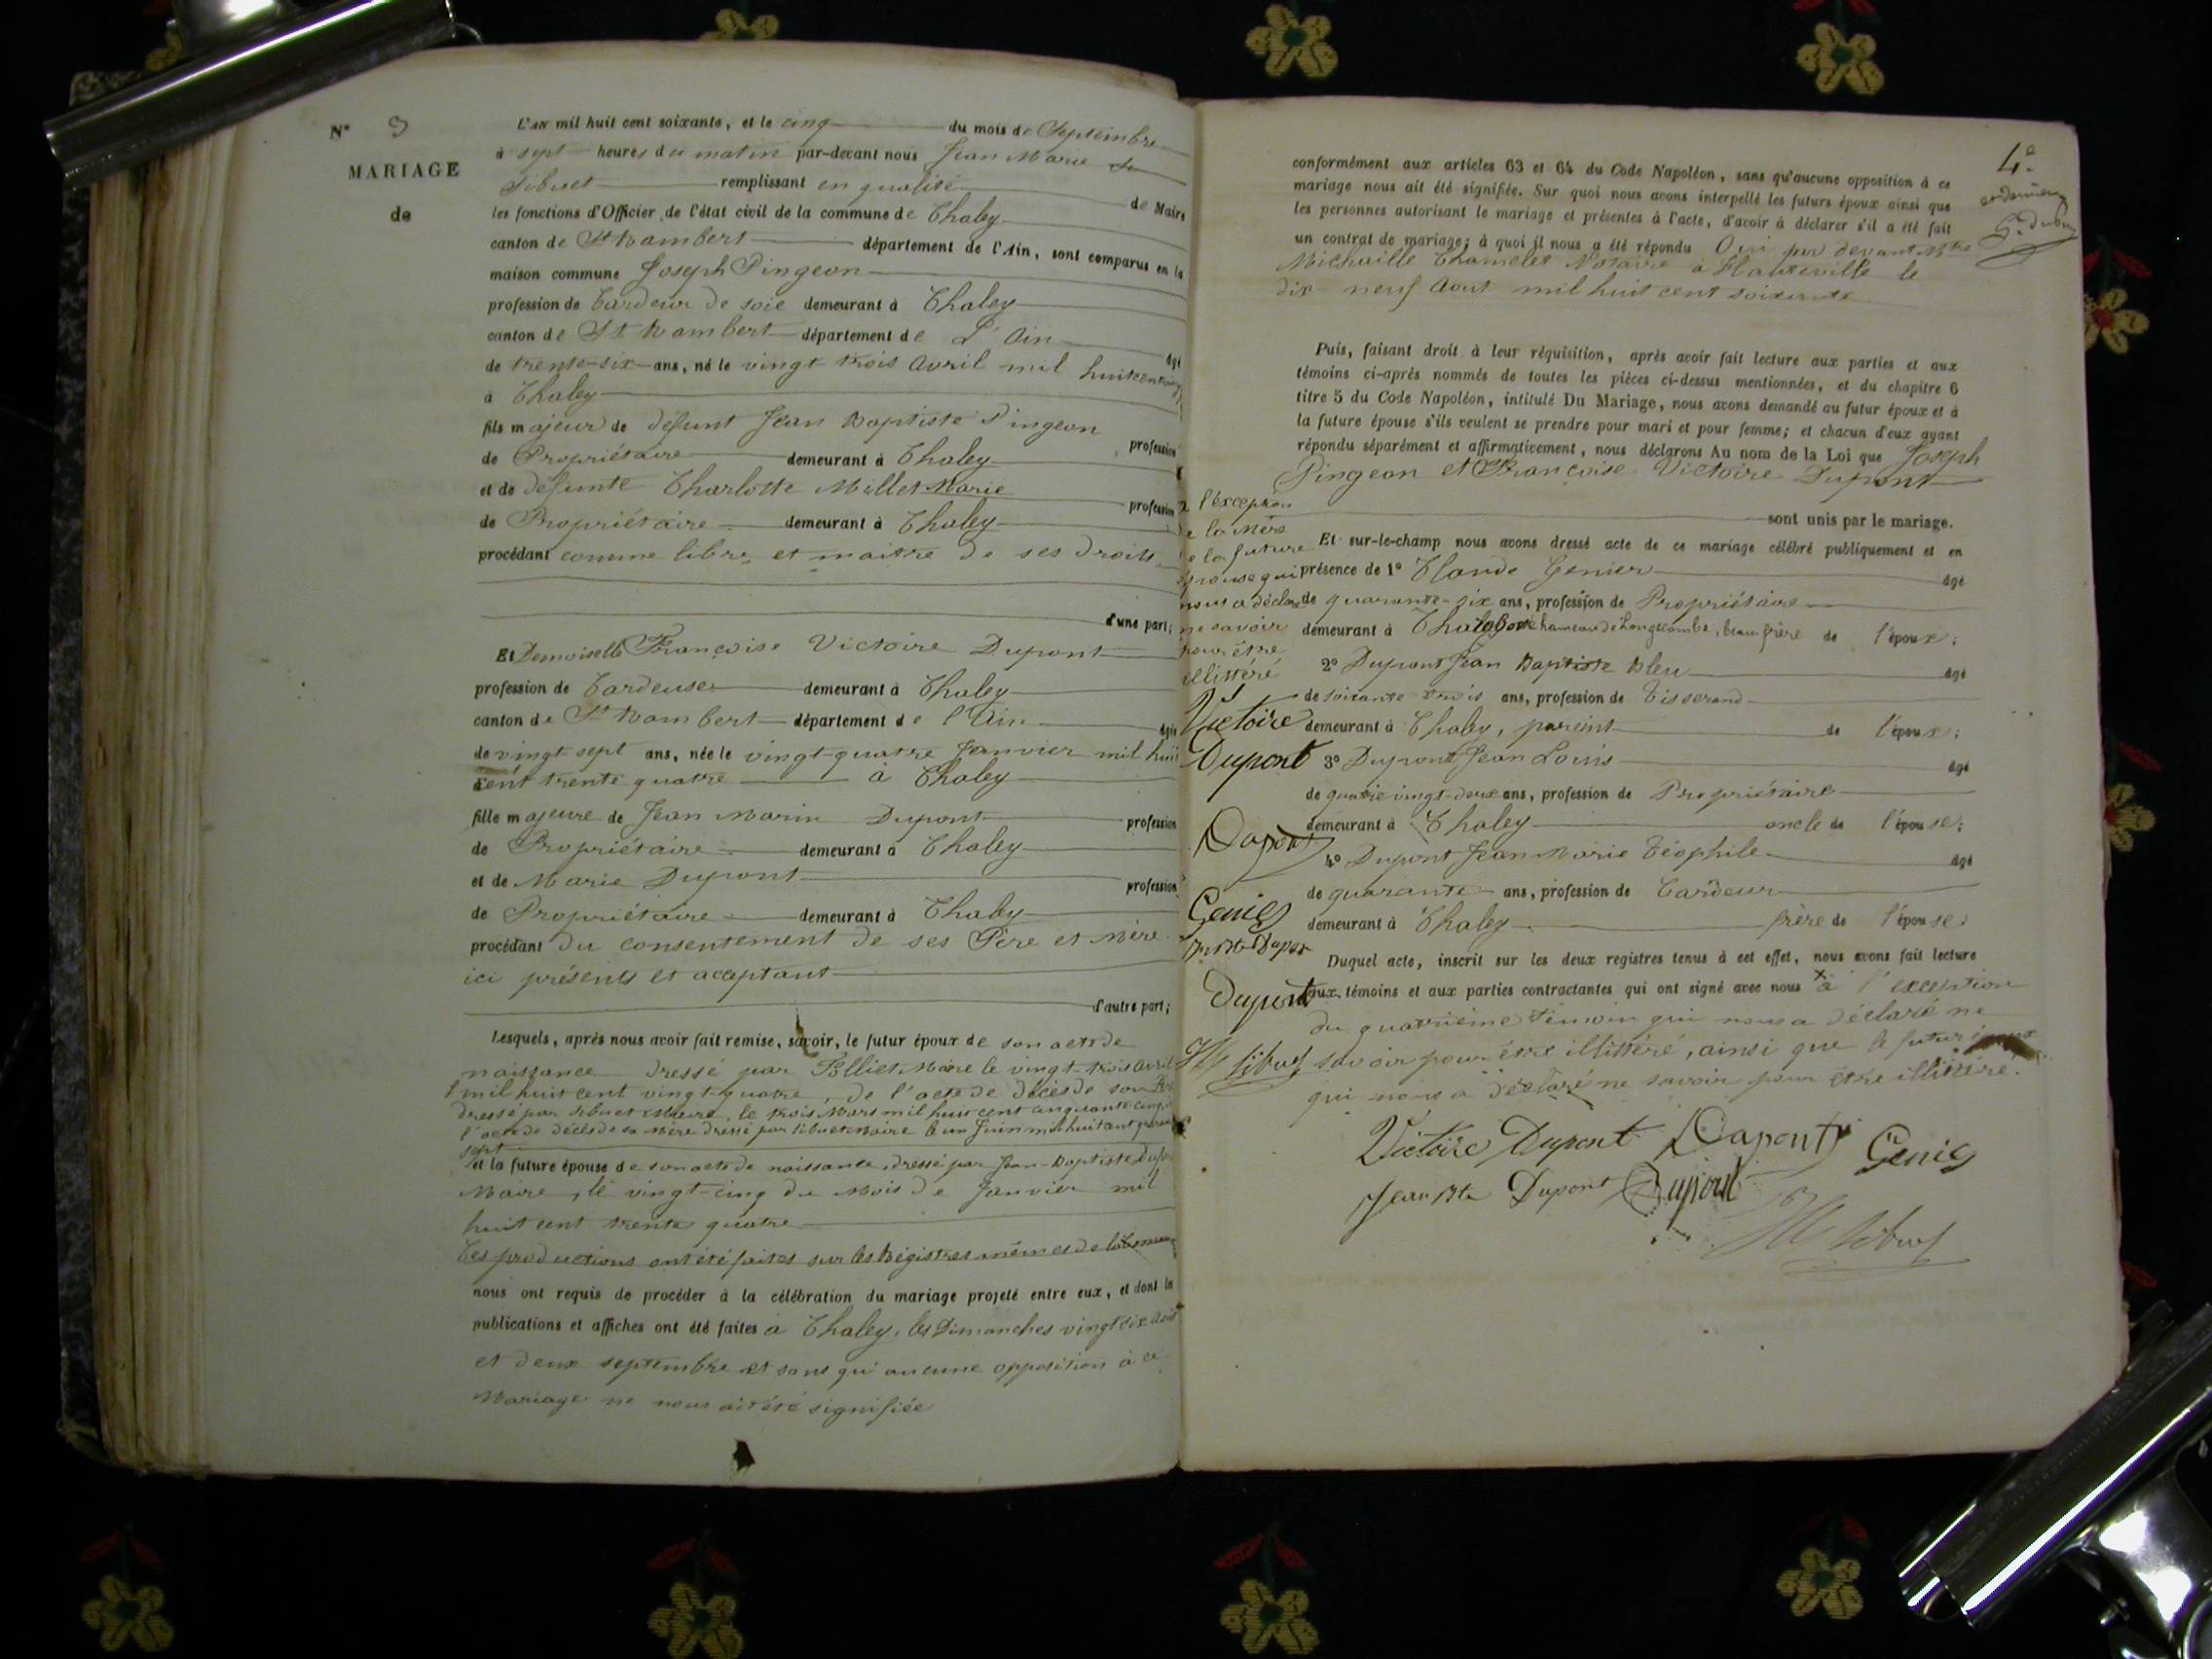 N° 3
MARIAGE
de
L'an mil huit cent soixante, et le cinq du mois de Septembre
à sept heures du matin par-devant nous Jean Marie
Sibuet remplissant en qualité de Maire
les fonctions d'Officier de l'état civil de la commune de Chaley
canton de St Rambert département de l'Ain, sont comparus en la
maison commune Joseph Pingeon
profession de Cardeur de soie demeurant à Chaley
canton de St Rambert département de L'Ain
âgé
de trente-six ans, né le vingt trois Avril mil huit cent
à Chaley
fils majeur de défunt Jean Baptiste Pingeon
profession
de Propriétaire demeurant à Chaley
et de défunte Charlotte Millet Marie
profession
de Propriétaire demeurant à Chaley
procédant comme libre et maitre de ses droits
d'une part;
Et Demoiselle Françoise Victoire Dupont
profession de Cardeuse demeurant à Chaley
canton de St Rambert département de l'Ain
âgée
de vingt sept ans, née le vingt-quatre Janvier mil huit
cent trente quatre à Chaley
fille majeure de Jean Marin Dupont profession
de Propriétaire demeurant à Chaley
et de Marie Dupont profession
de Propriétaire demeurant à Chaley
procédant du consentement de ses Père et Mère
ici présents et acceptant
d'autre part;
Lesquels, après nous avoir fait remise, savoir, le futur époux de son acte de
naissance dressé par Maire le vingt-trois Avril
mil huit cent vingt-quatre, de l'acte de décès de son
dressé par Sibuet Maire, le trois Mars mil huit cent cinquante cinq
l'acte de décès de sa Mère dressé par Sibuet Maire le un Juin mil huit cent
sept
et la future épouse de son acte de naissance, dressé par Jean-Baptiste
Maire, le vingt-cinq du Mois de Janvier mil
huit cent trente quatre
Ces productions ont été faites sur les Régistres mêmes de la
nous ont requis de procéder à la célébration du mariage projeté entre eux, et dont les
publications et affiches ont été faites à Chaley, les Dimanches vingt six Aout
et deux septembre et sans qu'aucune opposition à ce
Mariage ne nous ait été signifiée
4e
et dernier
conformément aux articles 63 et 64 du Code Napoléon, sans qu'aucune opposition à ce
mariage nous ait été signifiée. Sur quoi nous avons interpellé les futurs époux ainsi que
les personnes autorisant le mariage et présentes à l'acte, d'avoir à déclarer s'il a été fait
un contrat de mariage; à quoi il nous a été répondu Oui par devant Mtre
Michaille Chamelet Notaire à Hauteville le
dix-neuf Aout mil huit cent soixante
Puis, faisant droit à leur réquisition, après avoir fait lecture aux parties et aux
témoins ci-après nommés de toutes les pièces ci-dessus mentionnées, et du chapitre 6
titre 5 du Code Napoléon, intitulé Du Mariage, nous avons demandé au futur époux et à
la future épouse s'ils veulent se prendre pour mari et pour femme; et chacun d'eux ayant
répondu séparément et affirmativement, nous déclarons Au nom de la Loi que Joseph
Pingeon et Françoise Victoire Dupont
sont unis par le mariage.
Et sur-le-champ nous avons dressé acte de ce mariage célébré publiquement et en
présence de 1° Claude Genier âgé
de quarante-six ans, profession de Propriétaire
demeurant à hameau de Longecombe, beau frère de l'époux;
2° Dupont Jean Baptiste Bleu âgé
de soixante trois ans, profession de Tisserand
demeurant à Chaley, parent de l'époux;
3° Dupont Jean Louis âgé
de quatre vingt-deux ans, profession de Propriétaire
demeurant à Chaley oncle de l'épouse;
4° Dupont Jean Marie Téophile âgé
de quarante ans, profession de Cardeur
demeurant à Chaley frère de l'épouse;
Duquel acte, inscrit sur les deux registres tenus à cet effet, nous avons fait lecture
aux témoins et aux parties contractantes qui ont signé avec nous x à l'exception
du quatrième témoin qui nous a déclaré ne
savoir pour être illittéré, ainsi que le futur époux
qui nous a déclaré ne savoir pour être illittéré.
l'exception
de la Mère
de la future
épouse qui
nous a déclaré
ne savoir
pour être
illittéré
Victoire
Dupont
Dupont
Genier
Jn Bte Dupont
Dupont
JM Sibuet
Victoire Dupont Dupont Genier
Jean Bte Dupont Dupont
JM Sibuet